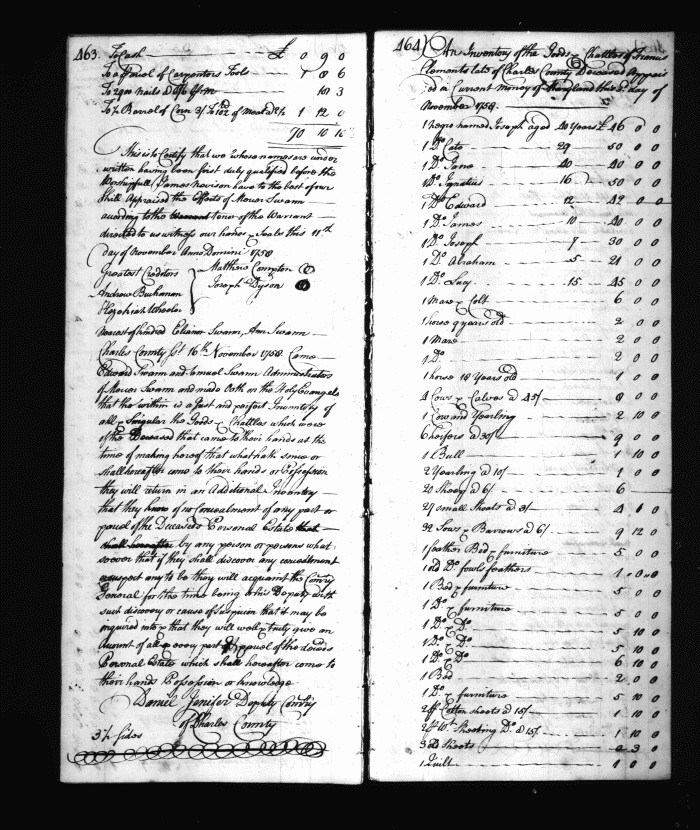 463. To Cash £ 0 9 0
To a Parcel of Carpenters Tools 1 8 6
To 2900 nails @ 6/6 10 3
To ½ Barrel of Corn 3/ To 102 of Meal 1 12 0
70 10
This is to Certify that we whose names are under
written having been first duly qualified before the
Worshipfull James Nevison have to the best of our
Skill Appraised the Effects of Swann
according to the Tenor of the Warrant
directed to us witness our hands & Seales this 11th
Day of November Anno Domini 1758
Greatest Creditors Matthew Compton
Joseph Dyson
Andrew Buchanan
Hezekiah Wheeler
Nearest of kindred Eleanor Swann, Ann Swann
Charles County Sc 16th November 1758 Came
Edward Swann and Samuel Swann Administrators
of Swann and made Oath on the Holy Evangels
that the within is a Just and perfect Inventory of
all & Singular the Goods & Chattles which were
of the Deceased that came to their hands at the
time of making hereof that what hath since or
shall hereafter come to their hands or Possession
they will return in an Additional Inventory
that they know of no concealment of any part or
parcel of the Deceaseds Personal Estate that
shall hereafter by any person or persons what
soever that if they shall discover any concealment
or suspect any to be they will acquaint the Comry
General for the time being or his Deputy with
such discovery or cause of suspicion that it may be
inquired into & that they will well & truly give an
Account of all & every part & parcel of the deceds
Personal Estate which shall hereafter come to
their hand Possession or knowledge
Daniel Jenifer Deputy Comry
of Charles County
3½ Sides
464) An Inventory of the Goods & Chattles of Francis
Clements late of Charles County Deceased Apprais
ed in Current money of Maryland this day of
November 1758
1 negro named Joseph aged 40 Years £ 46 0 0
1 Do Cate 29 50 0 0
1 Do Jane 40 40 0 0
1 Do Ignatius 16 50 0 0
1 Do Edward 12 42 0 0
1 Do James 10 40 0 0
1 Do Joseph 7 30 0 0
1 Do Abraham 5 21 0 0
1 Do Lucy 15 45 0 0
1 Mare & Colt 6 0 0
1 horse 9 years old 2 0 0
1 Mare 2 0 0
1 Do 2 0 0
1 horse 18 Years old 1 0 0
4 Cows & Calves @ 45/ 8 0 0
1 Cow and Yearling 2 10 0
6 heifers @ 30/ 9 0 0
1 Bull 1 10 0
2 Yearling @ 10/ 1 0 0
20 Sheep @ 6/ 6
27 small Shoats @ 3/ 4 1 0
32 Sows & Barrows @ 6/ 9 12 0
1 feather Bed & furniture 5 0 0
1 old Do fowls feathers 1 0 0
1 Bed & furniture 5 0 0
1 Do & furniture 5 0 0
1 Do & Do 5 10 0
1 Do & Do 5 10 0
1 Do & Do 6 10 0
1 Bed 2 0 0
1 Do & furniture 5 10 0
2 pr Cotton sheets @ 15/ 1 10 0
2 pr Sheeting Do @ 15/ 1 10 0
3 old Sheets 0 3 0
1 Quilt 1 0 0